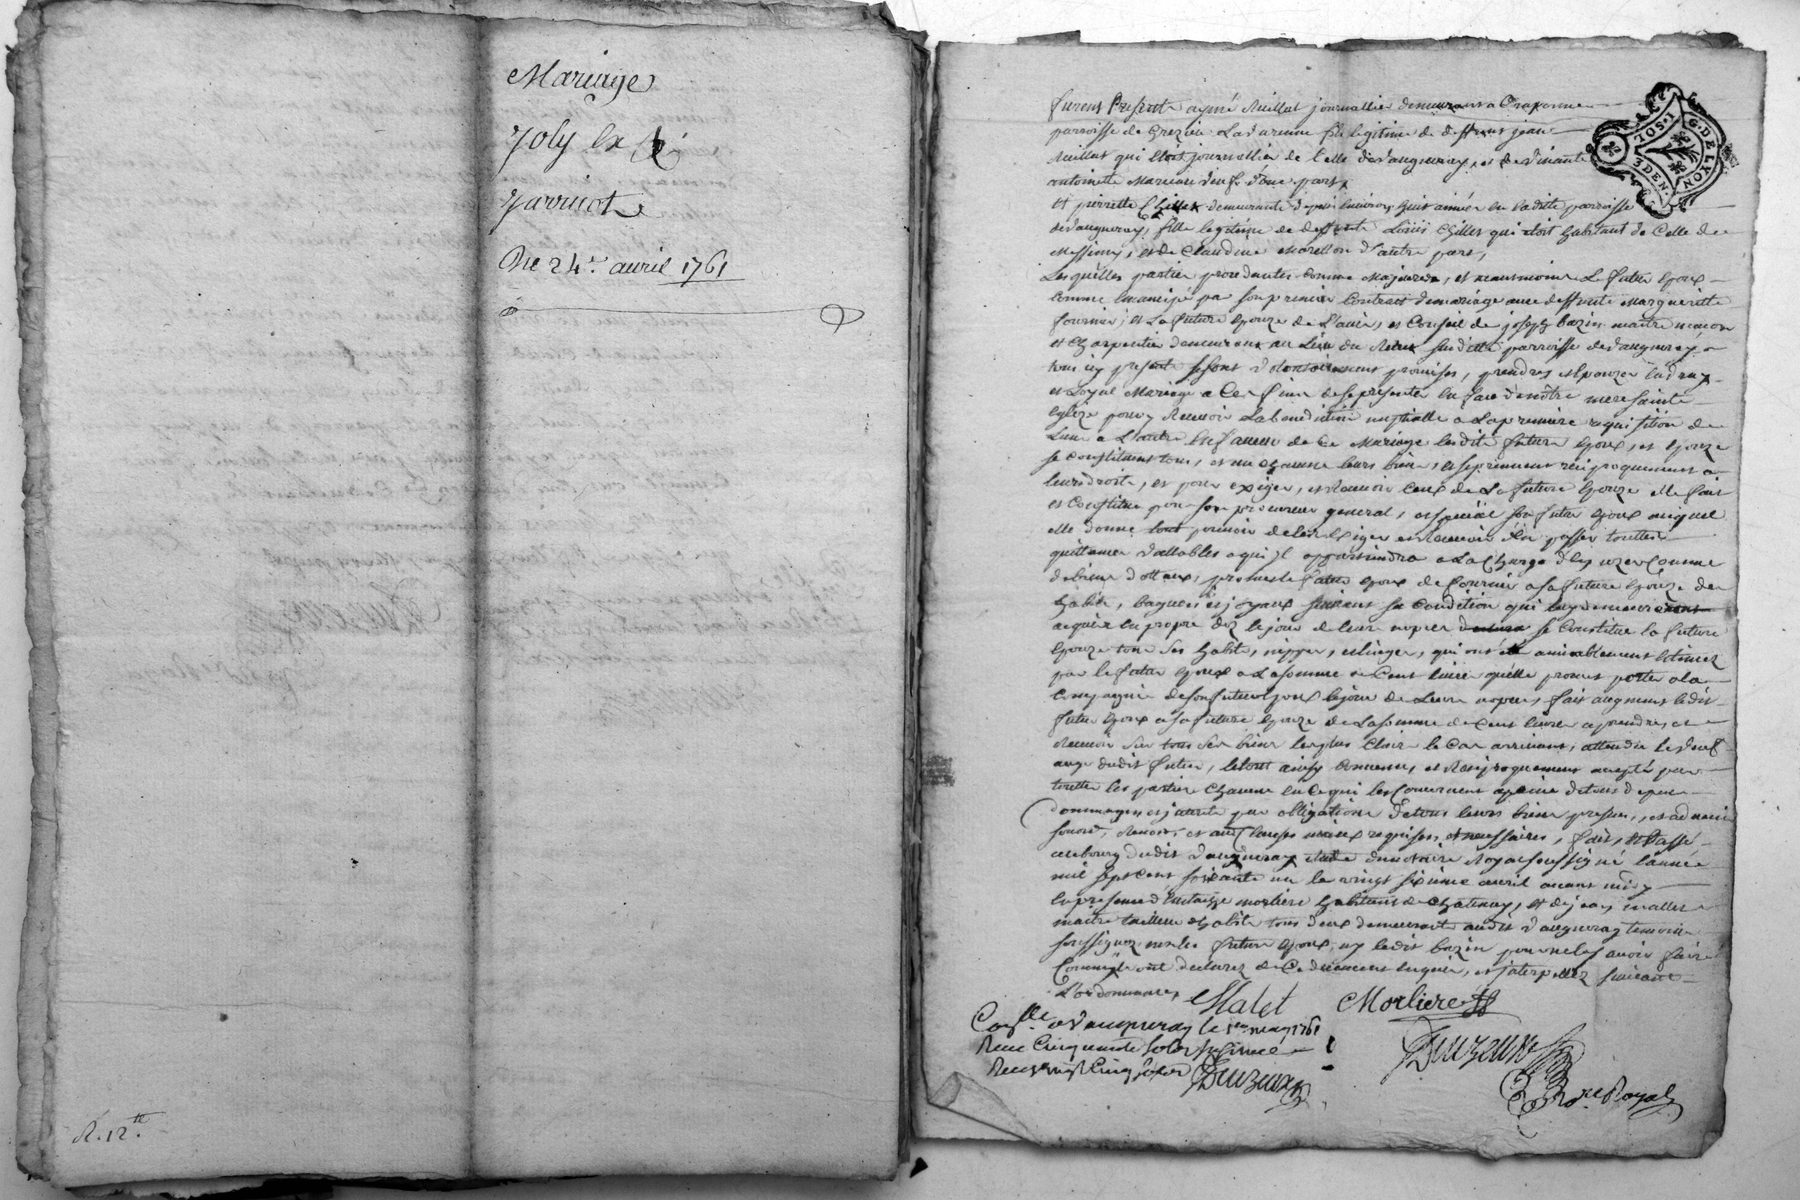 Mariage
Joly &
Jarricot
Du 24e. avril 1761
R. 12 tt
G. D. E LYON
1. SOL.
DEN.
furent Presents aymé Reillat journallier demeurant a Craponne
parroisse de Grezieu Lavarenne fils legitime de deffunt jean
Reillat qui êtoit journallier de Celle de vaugneray, et de vivante
antoinette veuf d'une part,
Et pierrette Gilles demeurante depuis environ huit années en Ladite parroisse
de vaugneray, fille legitime de deffunt Louis Gilles qui êtoit habitant de Celle de
Messimy, et de Claudine Morellon d'autre part,
Lesquelles parties procedantes comme Majeures, et neanmoins Le futur Epoux
comme emancipé par son premier Contract de mariage avec deffunte Margueritte
fournier, et La future Epouze de L'avis, et Conseil de joseph bazin maitre macon
et Charpentier demeurant au Lieu du susditte parroisse de vaugneray
tous icy presents se sont volontairement promises, prendre, et Epouzer en vray
et Loyal Mariage a Ces fins de se présenter en face de nôtre mere sainte
Eglize pour y Recevoir La benediction nuptialle a La premiere requisition de
L'une a L'autre En faveur de Ce Mariage Lesdits futurs Epoux, et Epouze
se Constituent tous, et un Chacuns leurs biens, et se prennent reciproquement a
leurs droits, et pour exiger, et Recevoir Ceux de La future Epouze elle fait
et Constitue pour son procureur general, et special son futur Epoux auquel
elle donne tout pouvoir de les Exiger et Recevoir d'en passer touttes
quittances vallables a qui Il appartiendra a La Charge d'en uzer Comme
de biens dottaux, promet le futur Epoux de fournir a sa future Epouze des
habits, bagues et joyaux suivant sa Condition qui luy demeureront
acquis en propre dez le jour de leurs nopces se Constitue la future
Epouze tous ses habits, nippes, et linges, qui ont été amiablement Estimez
par le futur Epoux a La somme de Cent livres qu'elle promet porter a la
Compagnie de son futur Epoux le jour de Leurs nopces, fait augment ledit
futur Epoux a sa future Epouze de La somme de Cent livres a prendre, et
Recevoir sur tous ses biens les plus Clairs le Cas arrivant, attendu le veuf-
-age dudit futur, le tout ainsy Convenu, et Reciproquement accepté par
touttes les parties Chacune en Ce qui les Concernent a peine de tous depens
dommages et interets par obligations de tous leurs biens presents, et advenir
renonc, et aux Clauses requises, et necessaires, fait, et Passé
au bourg dudit vaugneray Etude du notaire Royal soussigné l'année
mil sept cent soixante un le vingt sixieme avril avant midy
En presence d'Eustache morliere habitant de Chatenay, et de jean mallet
maitre tailleur d'habits tous deux demeurants audit vaugneray temoins
soussignez non les futurs Epoux, ny ledit bazin pour ne le sçavoir faire
Comme ils ont declarez de Ce duement Enquis, et interpellez suivant
L'ordonnance,
Malet Morliere
Conlle a Vaugneray le 1er may 1761
Reçu Cinquante sols
Reçu vingt Cinq sols
not.re Royal